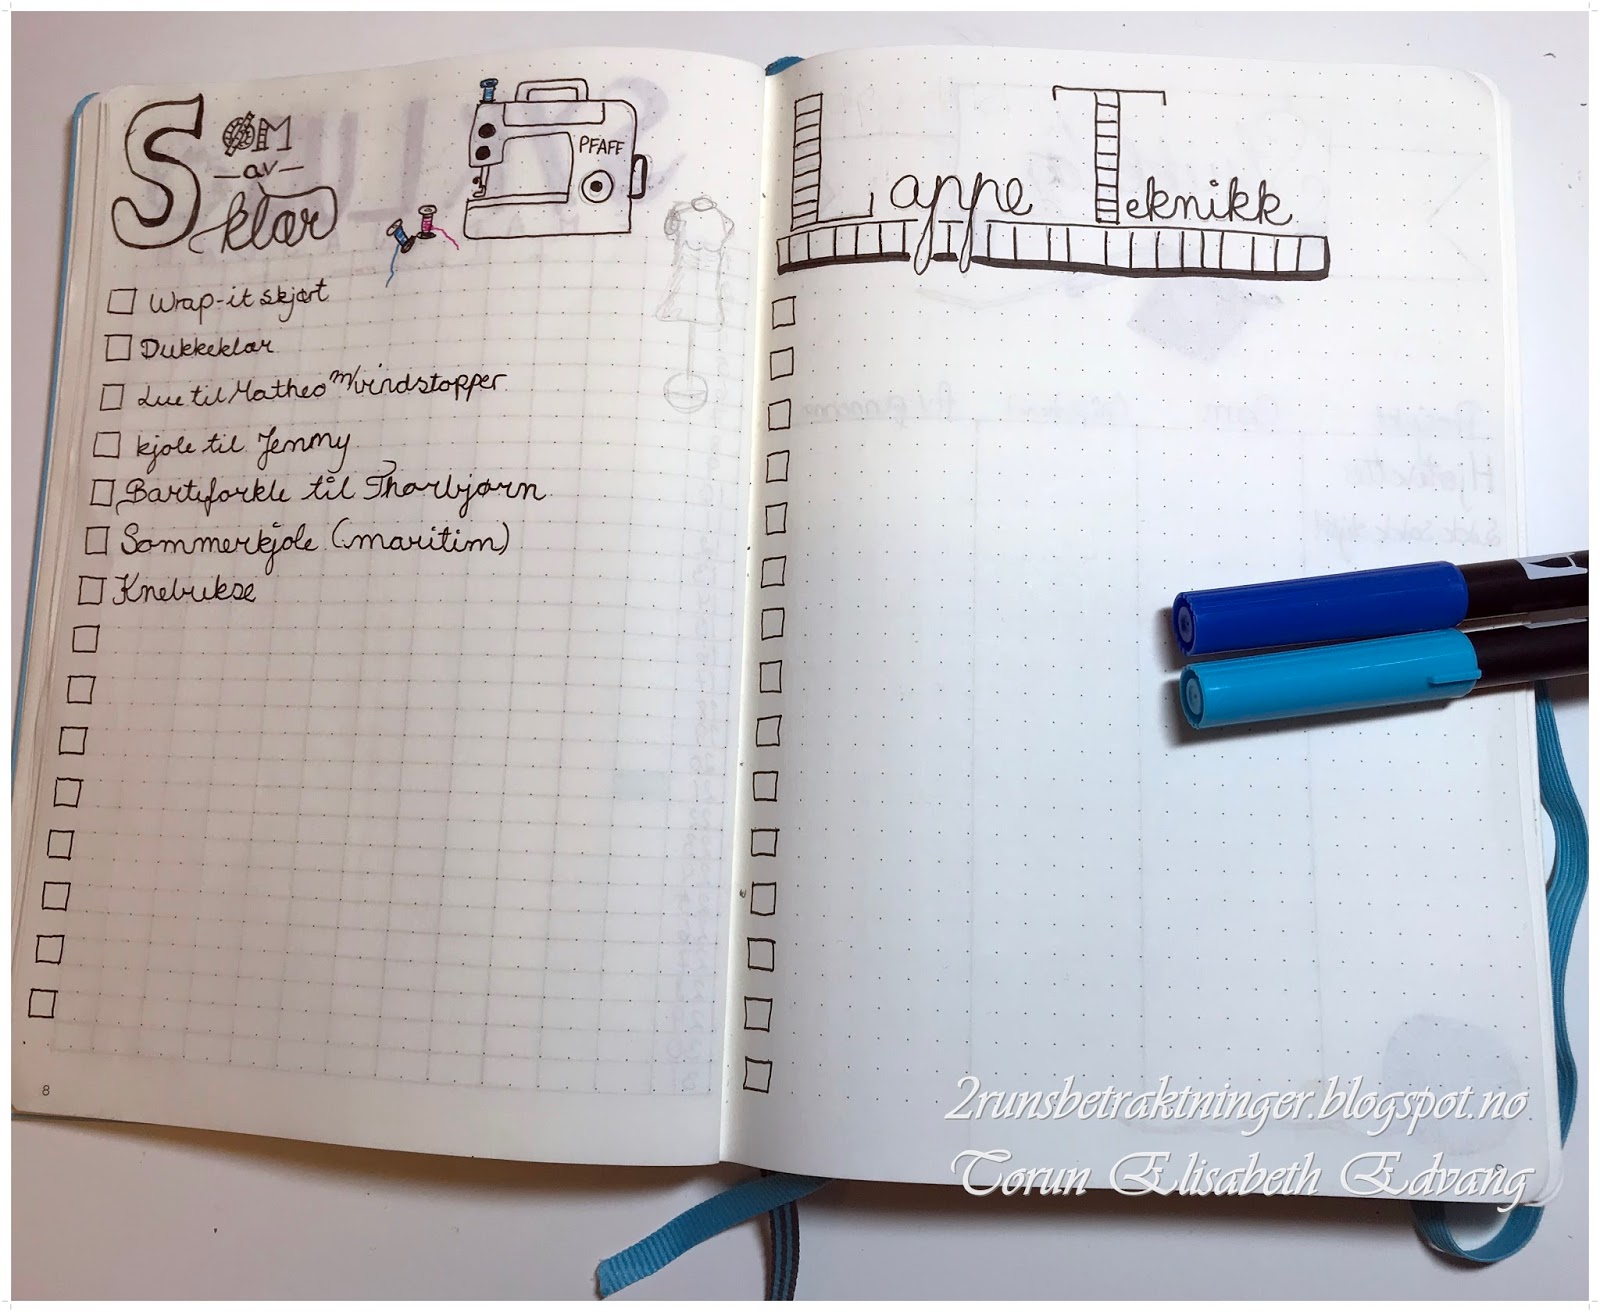 SØM
av
klær
PFAFF
Wrap-it skjørt
Dukkeklær
Lue til Matheo m/vindstopper
kjole til Jenny
Barteforkle til Thorbjørn
Sommerkjole (maritim)
Knebukse
8
Lappe Teknikk
2runsbetraktninger.blogspot.no
Torun Elisabeth Edvang